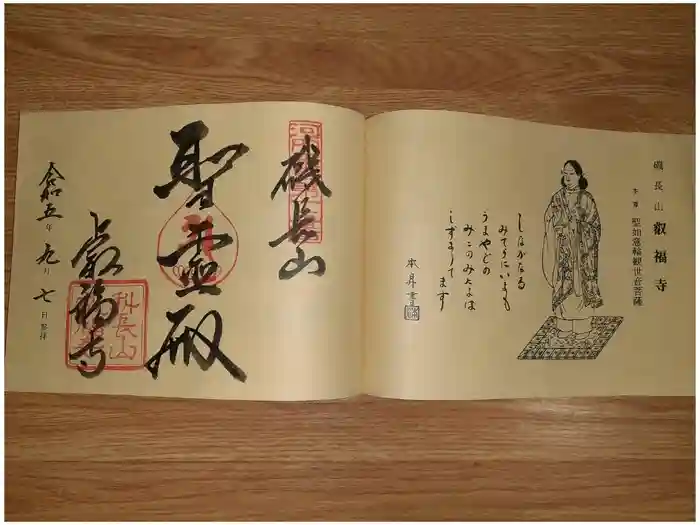 磯長山 叡福寺
本尊 聖如意輪観世音菩薩
しながなる
みてらにいまも
うまやどの
みこのみたまは
しずまりて ます
磯長山
聖霊殿
叡福寺
科長山
令和五年九月七日参拝